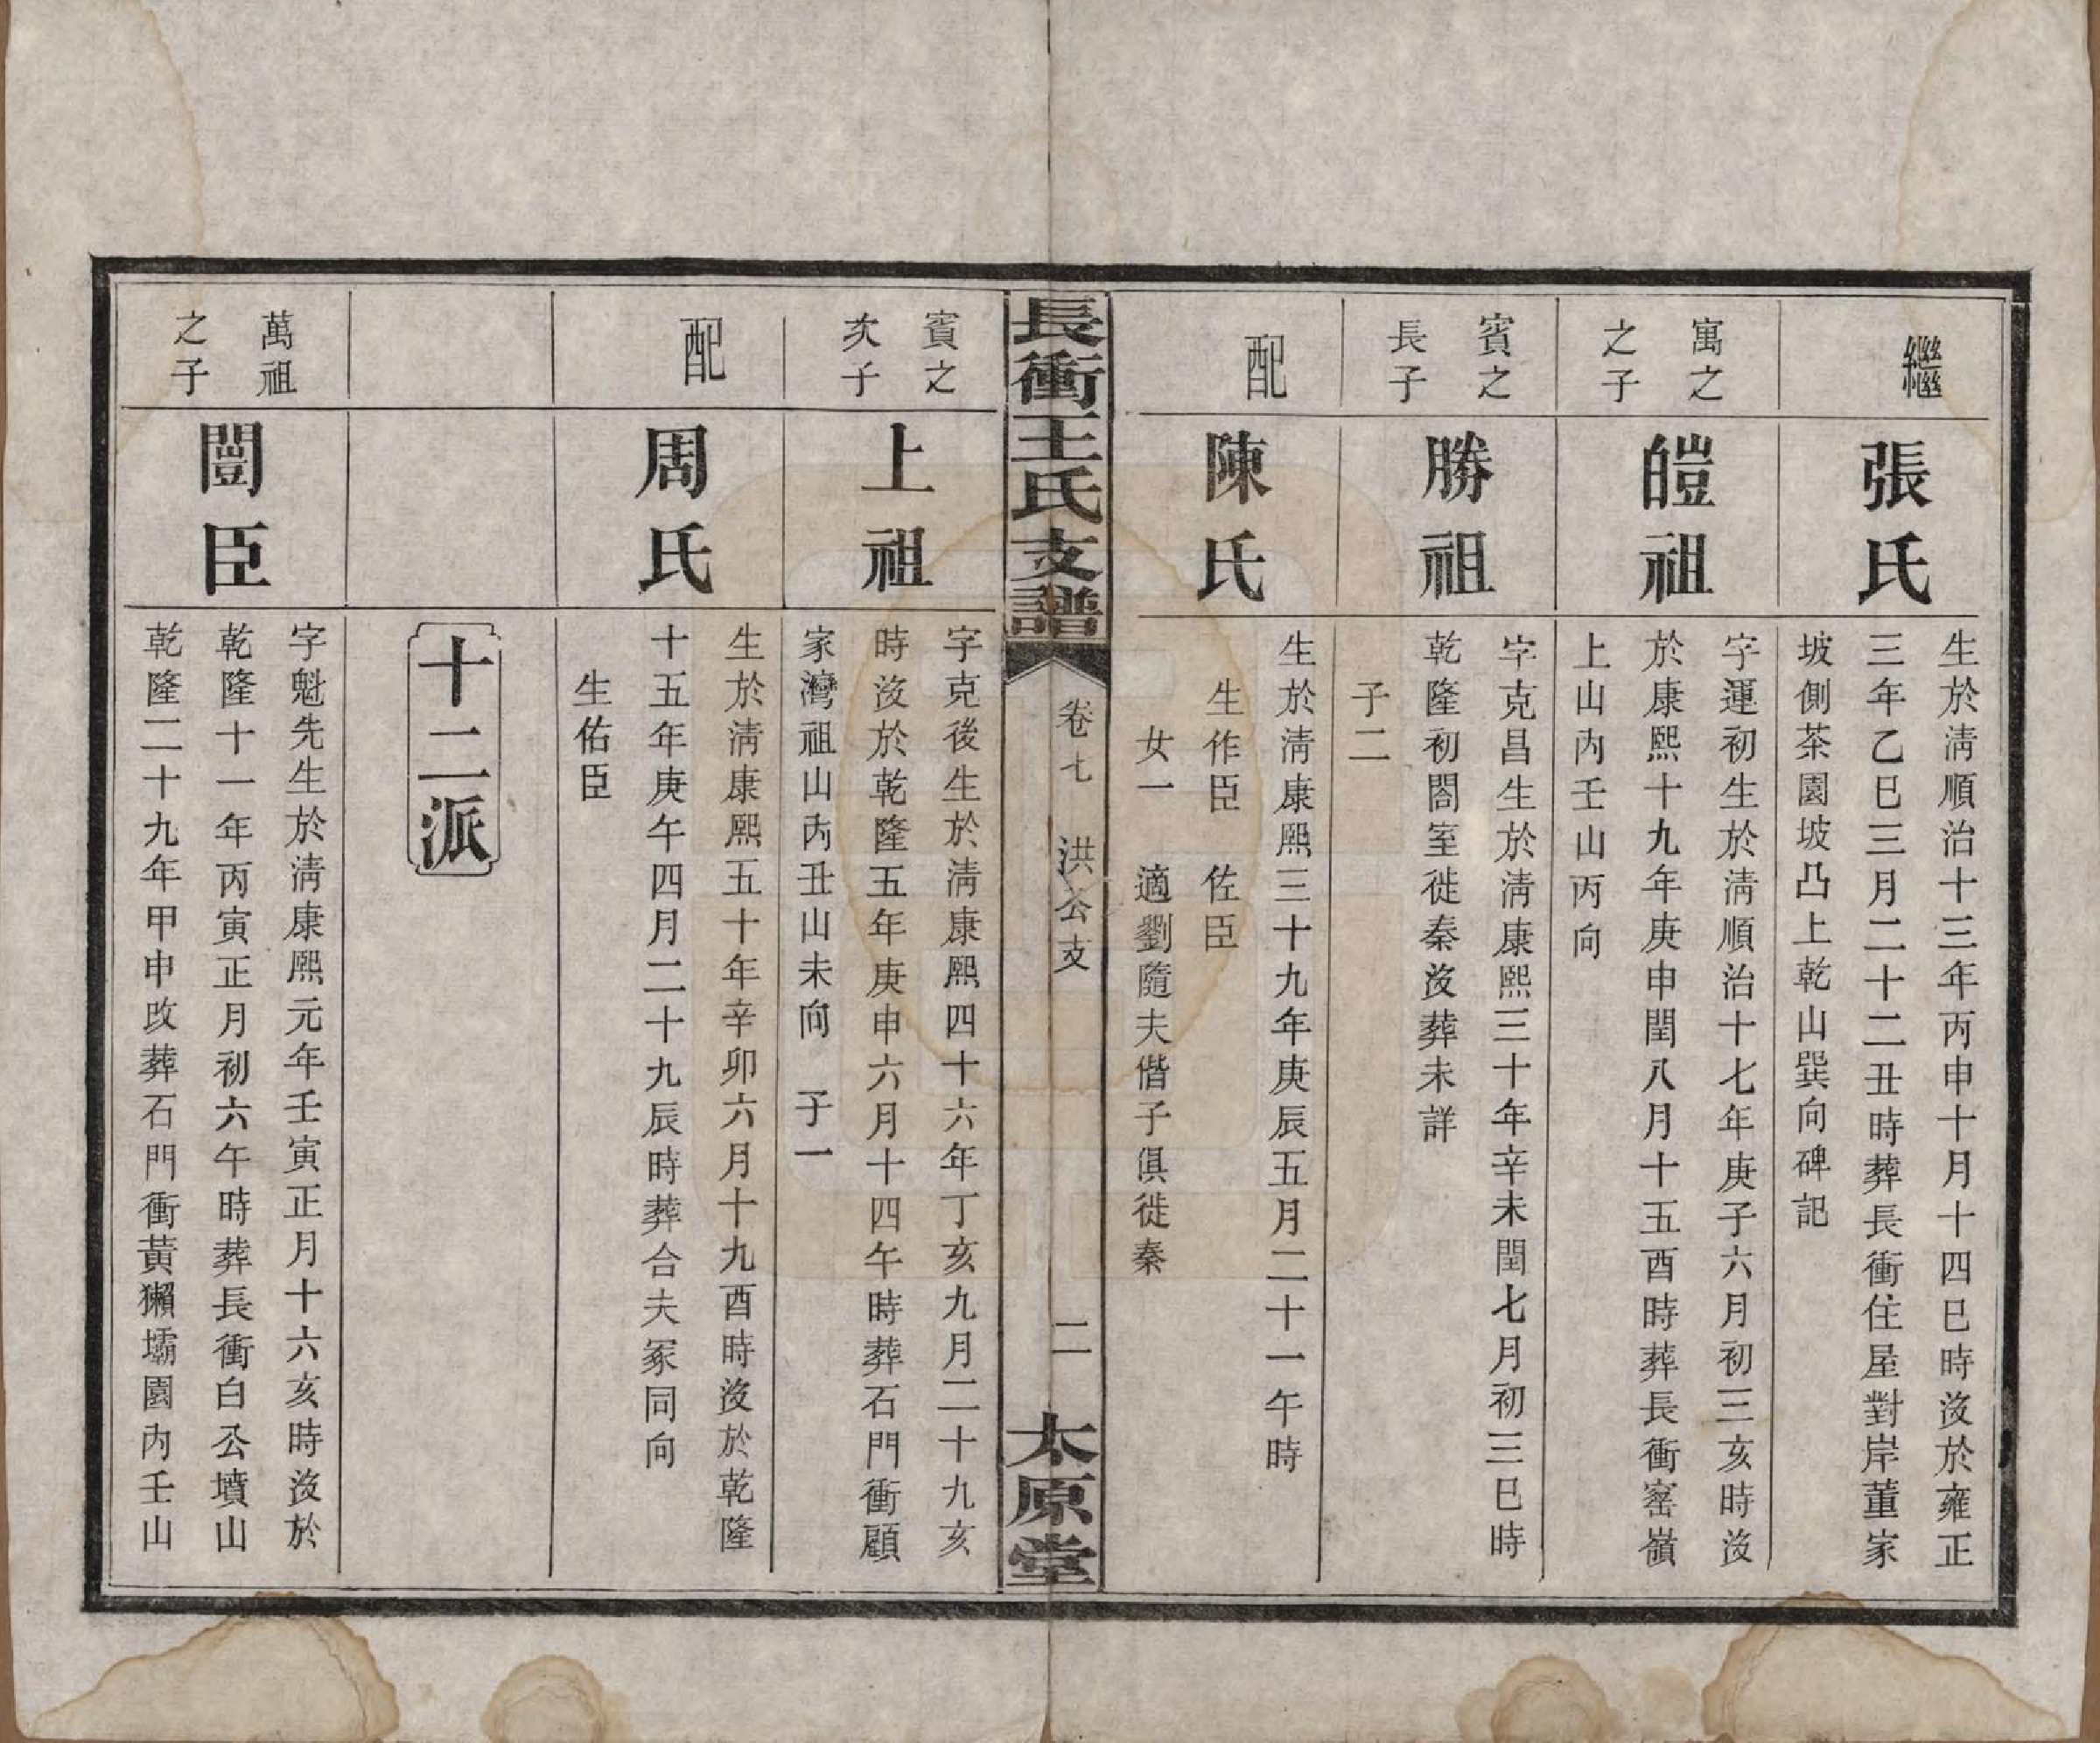 繼
張氏
生於淸順治十三年丙申十月十四巳時沒於雍正
三年乙巳三月二十二丑時葬長衝住屋對岸董家
坡側茶園坡凸上乾山巽向碑記
寓之
之子
皚祖
字運初生於淸順治十七年庚子六月初三亥時沒
於康熙十九年庚申閏八月十五酉時葬長衝窰嶺
上山內壬山丙向
賓之
長子
勝祖
字克昌生於淸康熙三十年辛未閏七月初三巳時
乾隆初閤室徙秦沒葬未詳
子二
配
陳氏
生於淸康熙三十九年庚辰五月二十一午時
生作臣　佐臣
女一　適劉隨夫偕子俱徙秦
長衝王氏支譜
卷七　洪公支
二
太原堂
賓之
次子
上祖
字克後生於淸康熙四十六年丁亥九月二十九亥
時沒於乾隆五年庚申六月十四午時葬石門衝顧
家灣祖山內丑山未向　子一
配
周氏
生於淸康熙五十年辛卯六月十九酉時沒於乾隆
十五年庚午四月二十九辰時葬合夫冢同向
生佑臣
十二派
萬祖
之子
闓臣
字魁先生於淸康熙元年壬寅正月十六亥時沒於
乾隆十一年丙寅正月初六午時葬長衝白公墳山
乾隆二十九年甲申改葬石門衝黃獺壩園內壬山